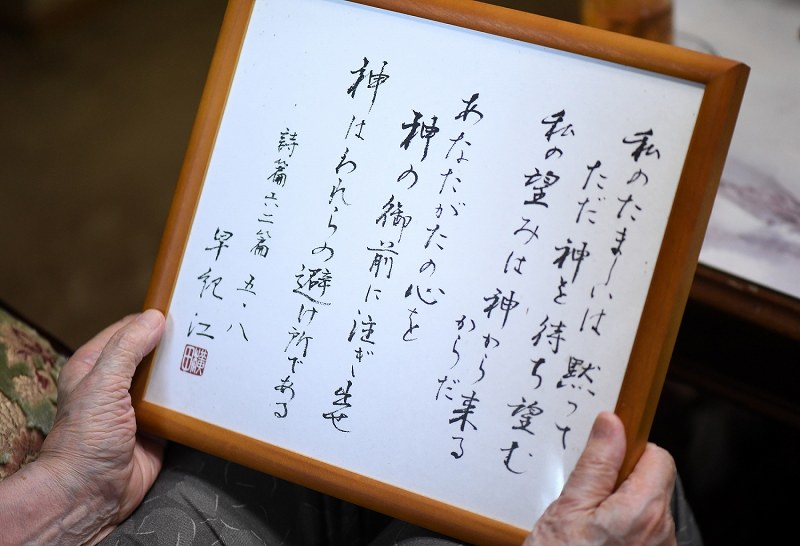 私のたましいは 黙って
ただ神を待ち望む
私の望みは神から来る
からだ
あなたがたの心を
神の御前に注ぎ出せ
神はわれらの避け所である
詩篇六二篇 五・八
早紀江
横田